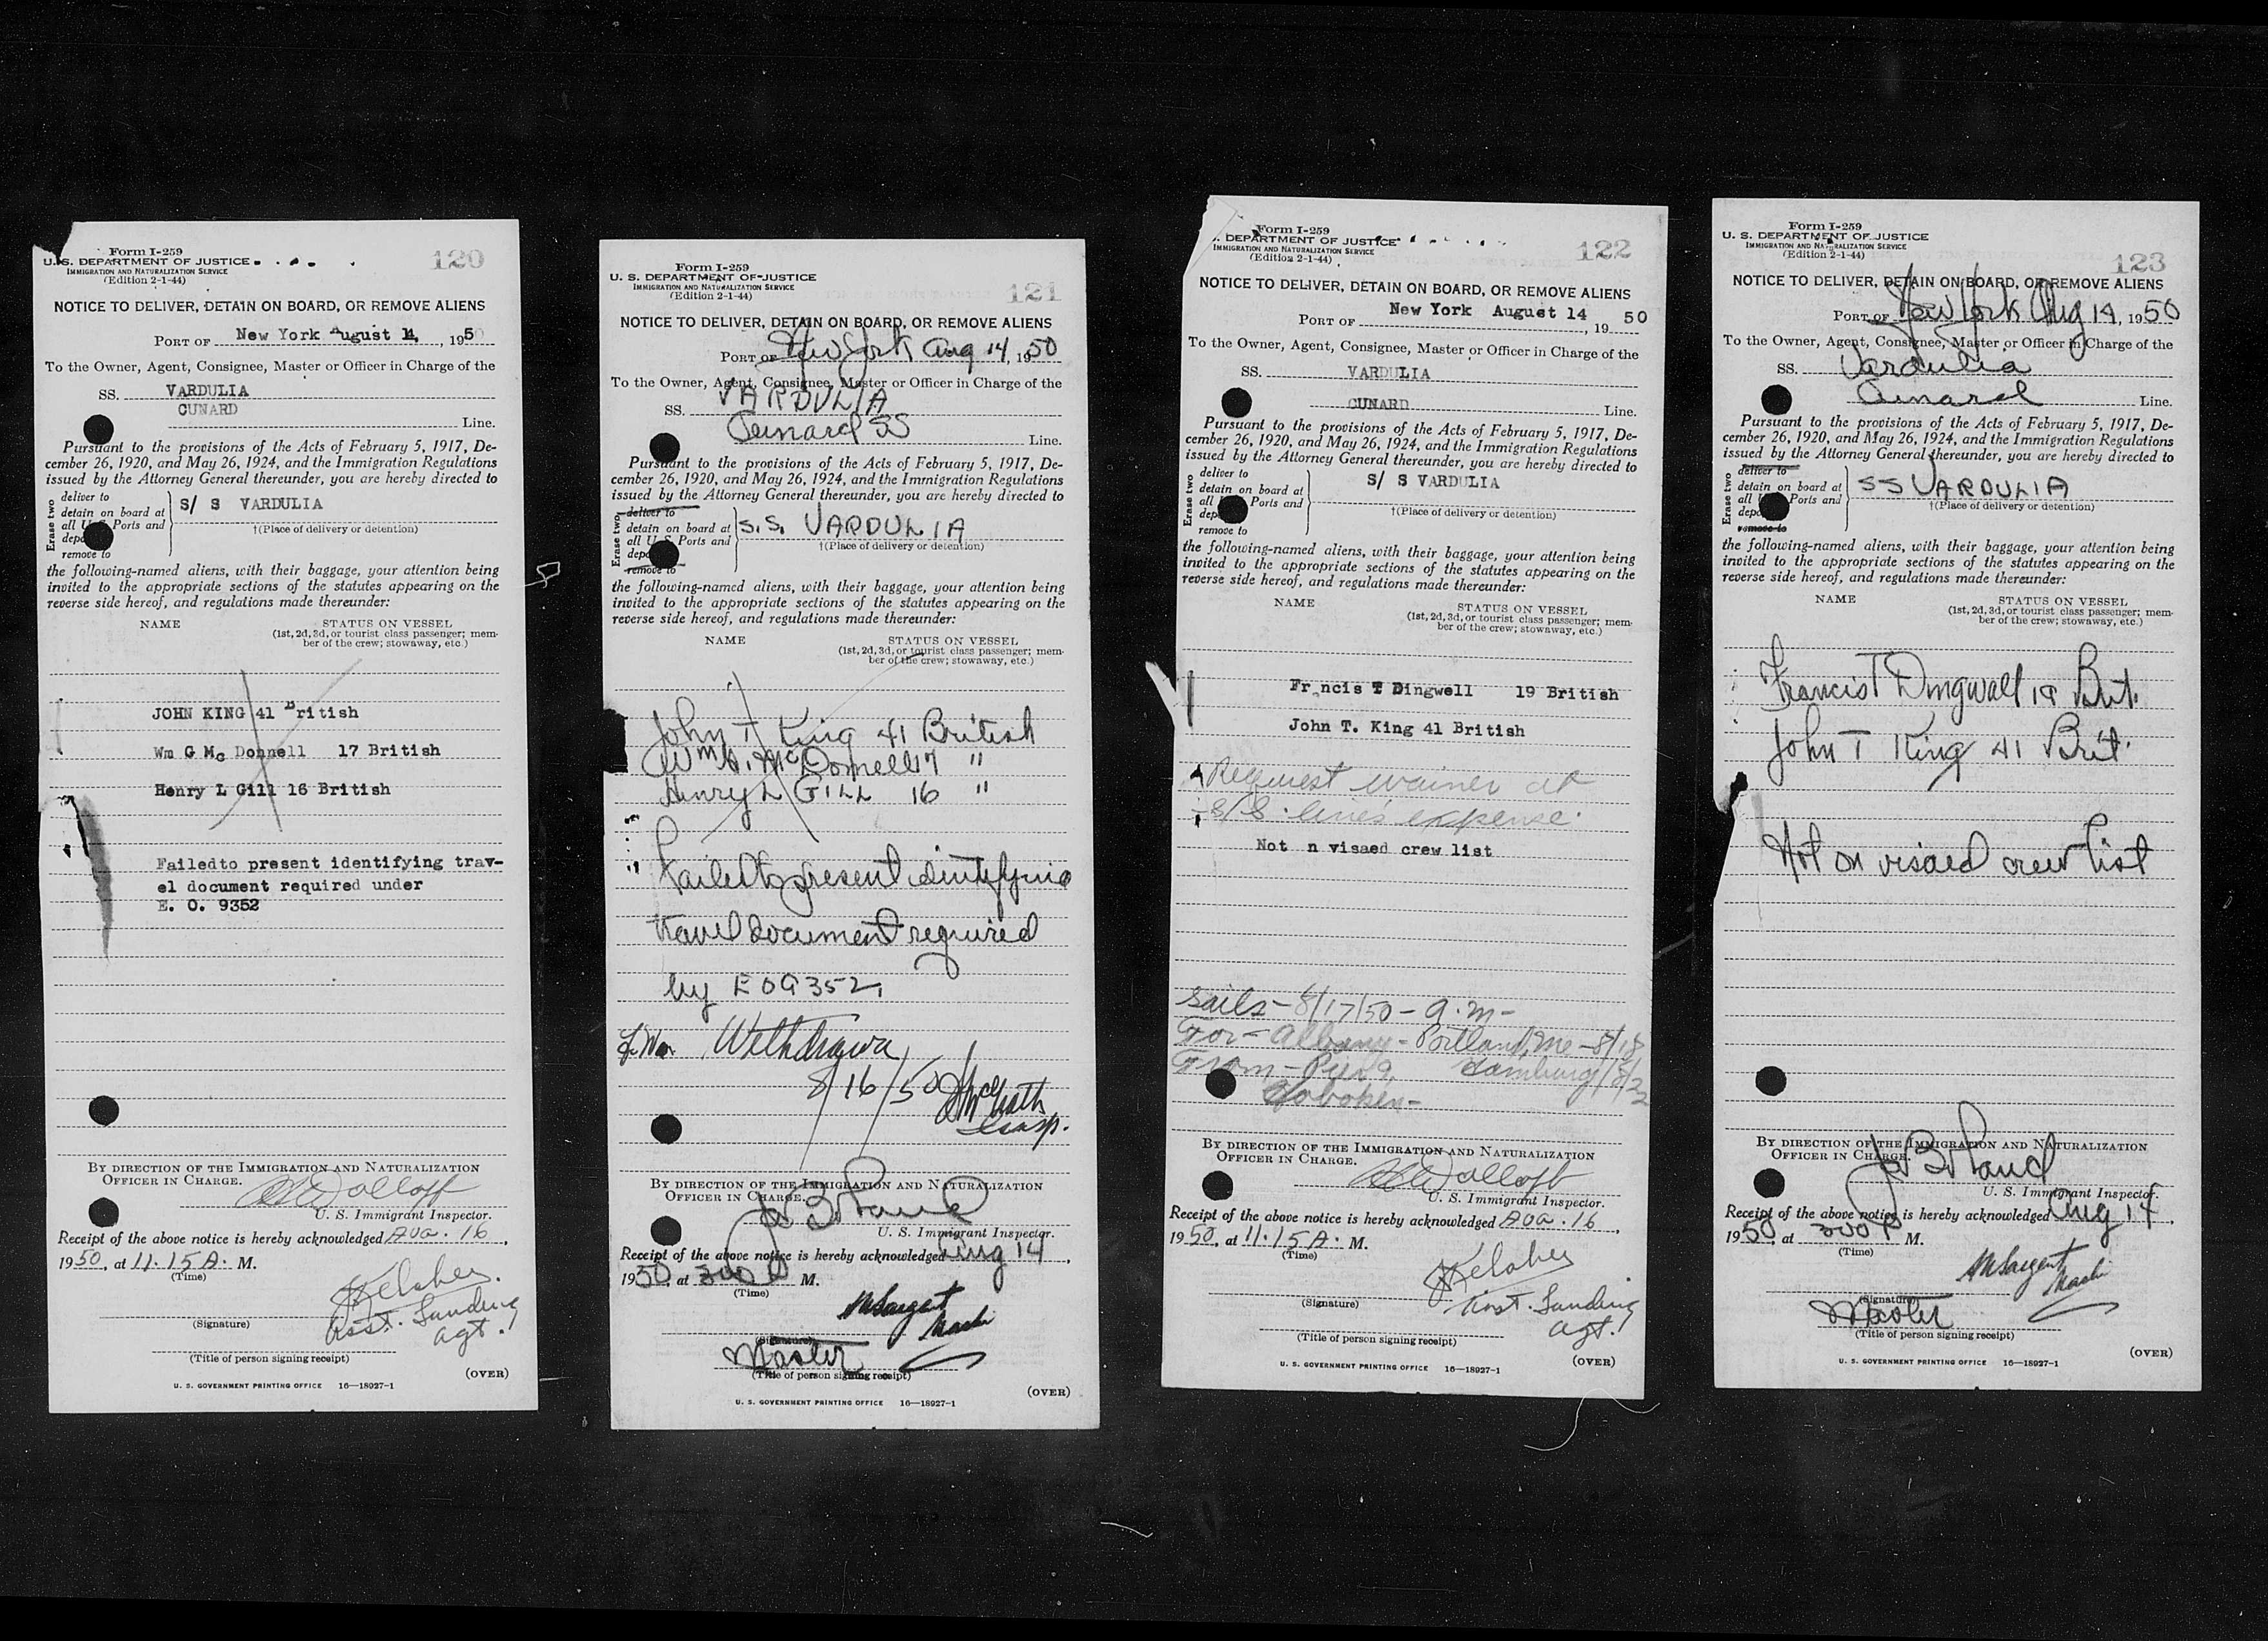 Form I-259
U. S. DEPARTMENT OF JUSTICE
IMMIGRATION AND NATURALIZATION SERVICE
(Edition 2-1-44)
120
NOTICE TO DELIVER, DETAIN ON BOARD, OR REMOVE ALIENS
PORT OF New York August 14, , 1950
To the Owner, Agent, Consignee, Master or Officer in Charge of the
SS. VARDULIA
CUNARD
Line.
Pursuant to the provisions of the Acts of February 5, 1917, De-
cember 26, 1920, and May 26, 1924, and the Immigration Regulations
issued by the Attorney General thereunder, you are hereby directed to
Erase two
deliver to
detain on board at
all U. S. Ports and
depo
remove to
S/ S VARDULIA
†(Place of delivery or detention)
the following-named aliens, with their baggage, your attention being
invited to the appropriate sections of the statutes appearing on the
reverse side hereof, and regulations made thereunder:
NAME STATUS ON VESSEL
(1st, 2d, 3d, or tourist class passenger; mem-
ber of the crew; stowaway, etc.)
JOHN KING 41 British
Wm G Mc Donnell 17 British
Henry L Gill 16 British
Failedto present identifying trav-
el document required under
E. O. 9352
BY DIRECTION OF THE IMMIGRATION AND NATURALIZATION
OFFICER IN CHARGE.
U. S. Immigrant Inspector.
Receipt of the above notice is hereby acknowledged Aug. 16,
1950, at 11.15 A. M.
(Time)
Kelaher
Asst. Landing
Agt.
(Signature)
(Title of person signing receipt)
(OVER)
U. S. GOVERNMENT PRINTING OFFICE 16—18927-1
Form I-259
U. S. DEPARTMENT OF JUSTICE
IMMIGRATION AND NATURALIZATION SERVICE
(Edition 2-1-44)
121
NOTICE TO DELIVER, DETAIN ON BOARD, OR REMOVE ALIENS
PORT OF New York Aug 14, 1950
To the Owner, Agent, Consignee, Master or Officer in Charge of the
SS. VARDULIA
Cunard SS
Line.
Pursuant to the provisions of the Acts of February 5, 1917, De-
cember 26, 1920, and May 26, 1924, and the Immigration Regulations
issued by the Attorney General thereunder, you are hereby directed to
Erase two
deliver to
detain on board at
all U. S. Ports and
depo
remove to
S.S. VARDULIA
†(Place of delivery or detention)
the following-named aliens, with their baggage, your attention being
invited to the appropriate sections of the statutes appearing on the
reverse side hereof, and regulations made thereunder:
NAME STATUS ON VESSEL
(1st, 2d, 3d, or tourist class passenger; mem-
ber of the crew; stowaway, etc.)
John T King 41 British
Wm G. McDonnell 17 "
Henry L GILL 16 "
Failed to present identifying
travel document required
by EO 9352
Withdrawn
8/16/50 McGrath
Insp.
BY DIRECTION OF THE IMMIGRATION AND NATURALIZATION
OFFICER IN CHARGE.
U. S. Immigrant Inspector.
Receipt of the above notice is hereby acknowledged Aug 14,
1950, at 300 P M.
(Time)
Sargent
(Signature)
Master
(Title of person signing receipt)
(OVER)
U. S. GOVERNMENT PRINTING OFFICE 16—18927-1
Form I-259
. DEPARTMENT OF JUSTICE
IMMIGRATION AND NATURALIZATION SERVICE
(Edition 2-1-44)
122
NOTICE TO DELIVER, DETAIN ON BOARD, OR REMOVE ALIENS
PORT OF New York August 14, 19 50
To the Owner, Agent, Consignee, Master or Officer in Charge of the
SS. VARDULIA
CUNARD Line.
Pursuant to the provisions of the Acts of February 5, 1917, De-
cember 26, 1920, and May 26, 1924, and the Immigration Regulations
issued by the Attorney General thereunder, you are hereby directed to
Erase two
deliver to
detain on board at
all U. S. Ports and
depo
remove to
S/ S VARDULIA
†(Place of delivery or detention)
the following-named aliens, with their baggage, your attention being
invited to the appropriate sections of the statutes appearing on the
reverse side hereof, and regulations made thereunder:
NAME STATUS ON VESSEL
(1st, 2d, 3d, or tourist class passenger; mem-
ber of the crew; stowaway, etc.)
Francis T Dingwell 19 British
John T. King 41 British
Request waiver at
S/S line's expense.
Not n visaed crew list
Sails - 8/17/50 - A.M -
For - Albany - Portland, Me - 8/18
From - Pier 9, Hamburg 8/22
Hoboken -
BY DIRECTION OF THE IMMIGRATION AND NATURALIZATION
OFFICER IN CHARGE.
U. S. Immigrant Inspector.
Receipt of the above notice is hereby acknowledged Aug. 16,
1950, at 11.15 A. M.
(Time)
Kelaher
Asst. Landing
Agt.
(Signature)
(Title of person signing receipt)
(OVER)
U. S. GOVERNMENT PRINTING OFFICE 16—18927-1
Form I-259
U. S. DEPARTMENT OF JUSTICE
IMMIGRATION AND NATURALIZATION SERVICE
(Edition 2-1-44)
123
NOTICE TO DELIVER, DETAIN ON BOARD, OR REMOVE ALIENS
PORT OF New York Aug 14, 1950
To the Owner, Agent, Consignee, Master or Officer in Charge of the
SS. Vardulia
Cunard Line.
Pursuant to the provisions of the Acts of February 5, 1917, De-
cember 26, 1920, and May 26, 1924, and the Immigration Regulations
issued by the Attorney General thereunder, you are hereby directed to
Erase two
deliver to
detain on board at
all U. S. Ports and
depo
remove to
SS VARDULIA
†(Place of delivery or detention)
the following-named aliens, with their baggage, your attention being
invited to the appropriate sections of the statutes appearing on the
reverse side hereof, and regulations made thereunder:
NAME STATUS ON VESSEL
(1st, 2d, 3d, or tourist class passenger; mem-
ber of the crew; stowaway, etc.)
Francis T Dingwall 19 Brit.
John T King 41 Brit.
Not on visaed crew list
BY DIRECTION OF THE IMMIGRATION AND NATURALIZATION
OFFICER IN CHARGE.
U. S. Immigrant Inspector.
Receipt of the above notice is hereby acknowledged Aug 14,
1950, at 300 P M.
(Time)
Sargent
(Signature)
Master
(Title of person signing receipt)
(OVER)
U. S. GOVERNMENT PRINTING OFFICE 16—18927-1